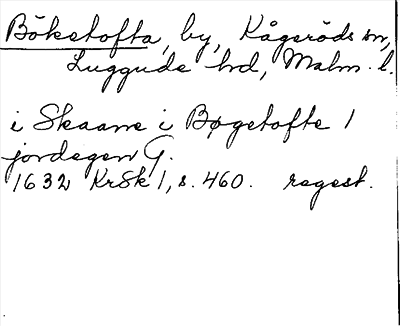 Bökstofta, by, Kågeröds sn,
Luggude hd, Malm. l.
i Skaane i Bøgetofte 1
jordegen G.
1632 KrSk 1, s. 460. regest.